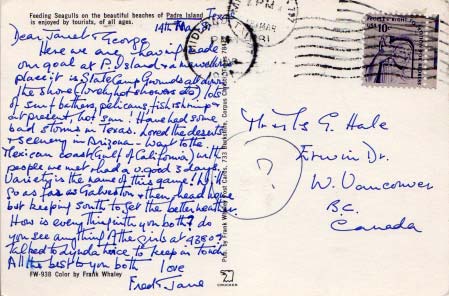 Feeding Seagulls on the beautiful beaches of Padre Island
is enjoyed by tourists, of all ages.
Texas
14th Mar
Dear Janet & George
Here we are having made
our goal at P. Island &
place it is State Camp Grounds all down
the shore (lovely hot showers etc) lots
of surf bathers, pelicans, fish, shrimp &
at present, hot sun! Have had some
bad storms in Texas. Loved the deserts
& scenery in Arizona - Went to the
Mexican coast (Gulf of California) with
people we met & had a good 3 days
Variety is the name of this game!
so as far as Galveston & then head home
but keeping south to get the better weather
How is everything with you both? do
you see anything of the girls at 4380 &
talked to Lynda twice to keep in touch
All the best to you both love
Fred & Jane
FW-938 Color by Frank Whaley
Pub. by Frank Whaley Post Cards, 733 Brookside, Corpus Christi, Texas
PM
MAR
1981
10c
Mr & Mrs G. Hale
Erwin Dr.
W. Vancouver
B.C.
Canada
?